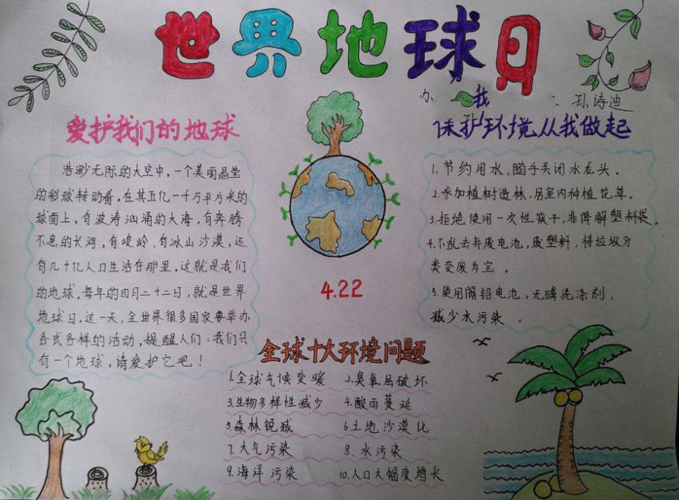 世界地球日
办 我 : 孙诗迪
爱护我们的地球
浩渺无际的太空中,一个美丽晶莹
的彩球转动着,在其五亿一千万平方米的
球面上,有波涛汹涌的大海,有奔腾
不息的长河,有峻岭,有冰山沙漠,还
有几十亿人口生活在那里,这就是我们
的地球。每年的四月二十二日,就是世界
地球日,这一天,全世界很多国家要举办
各式各样的活动,提醒人们:我们只
有一个地球,请爱护它吧!
4.22
保护环境,从我做起
1.节约用水,随手关闭水龙头。
2.参加植树造林,居室内种植花草。
3.拒绝使用一次性筷子,非降解塑料袋。
4.不乱丢弃废电池,废塑料,将垃圾分
类变废为宝。
5.使用隔铅电池,无磷洗涤剂,
减少水污染。
全球十大环境问题
1.全球气候变暖 2.臭氧层破坏
3.生物多样性减少 4.酸雨蔓延
5.森林锐减 6.土地沙漠化
7.大气污染 8.水污染
9.海洋污染 10.人口大幅度增长